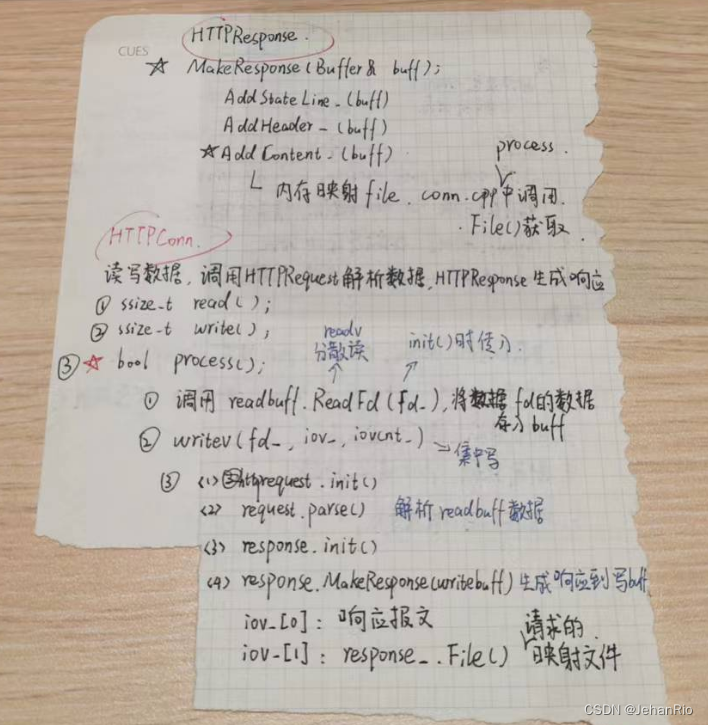 CUES
HTTPResponse.
☆ MakeResponse(Buffer& buff);
AddStateLine_(buff)
AddHeader_(buff)
☆AddContent_(buff)
process.
└ 内存映射file. conn.cpp中调用.
· File()获取.
HTTPConn.
读写数据, 调用HTTPRequest解析数据, HTTPResponse生成响应
① ssize_t read();
② ssize_t write();
③ ☆ bool process();
readv
分散读
init()时传入.
① 调用 readbuff.ReadFd(fd_), 将数据fd的数据
存入buff
② writev(fd_, iov_, iovcnt_) ⇒集中写
③ <1> request.init()
<2> request.parse() 解析readbuff数据
<3> response.init()
<4> response.MakeResponse(writebuff) 生成响应到写buff
iov_[0]: 响应报文
请求的.
iov_[1]: response_.File() 映射文件
CSDN @JehanRio